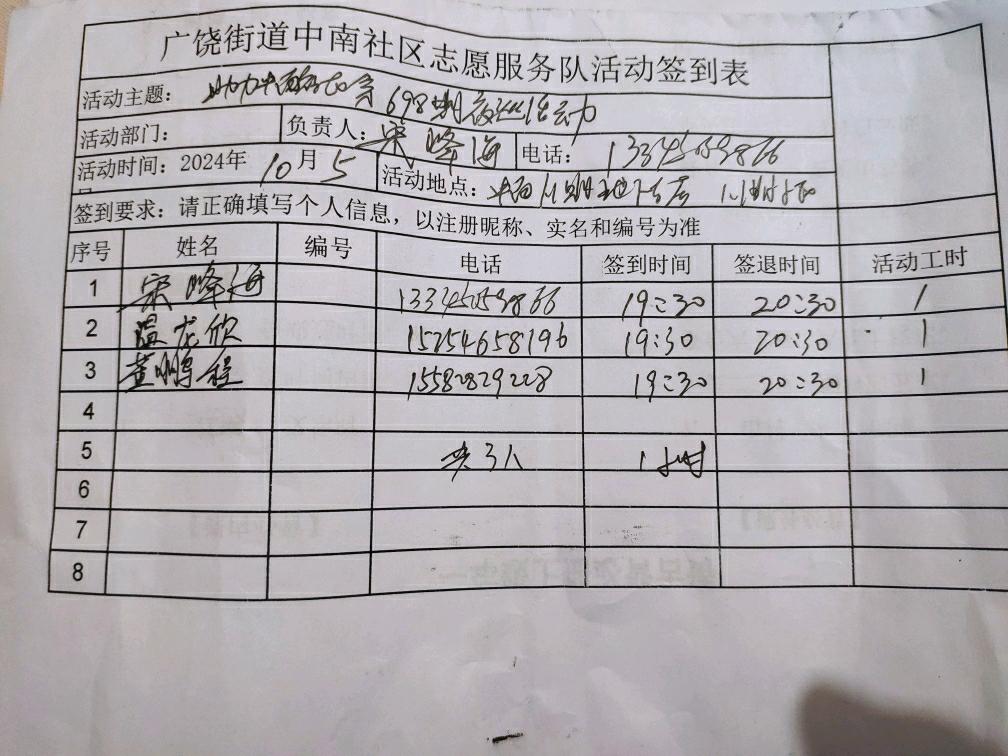 广饶街道中南社区志愿服务队活动签到表
活动主题: 助力 698期 活动
活动部门: 负责人: 宋峰海 电话: 13345059866
活动时间: 2024年 10月5 活动地点:
签到要求: 请正确填写个人信息, 以注册昵称、实名和编号为准
序号 姓名 编号 电话 签到时间 签退时间 活动工时
1 宋峰海 13345059866 19:30 20:30 1
2 温龙欣 15254658196 19:30 20:30 1
3 董鹏程 15582829228 19:30 20:30 1
4
5 共3人 1小时
6
7
8